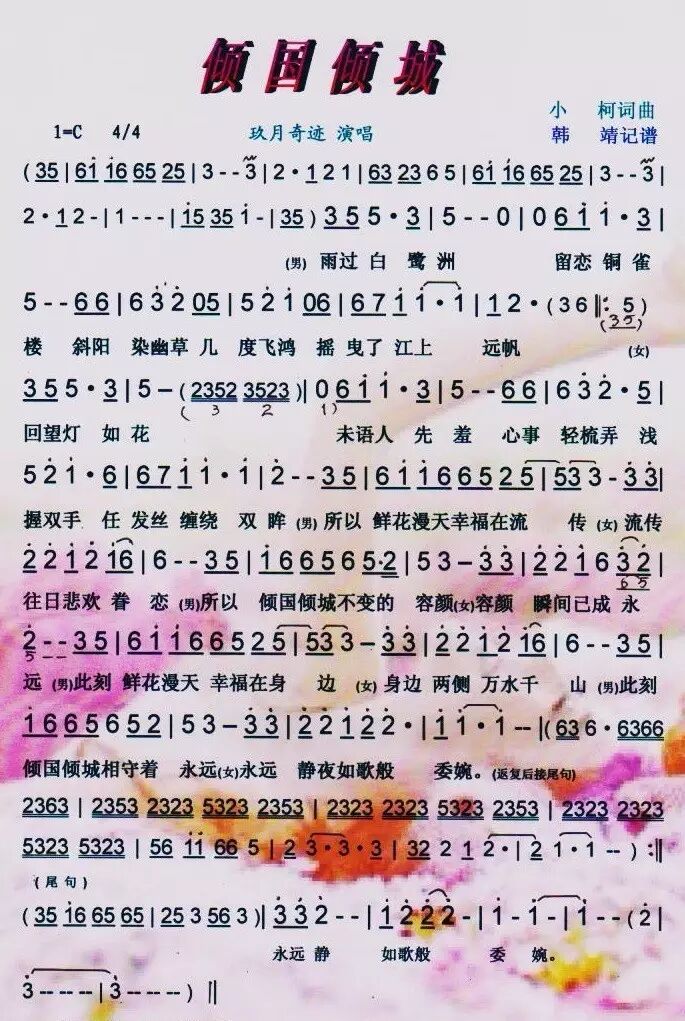 倾国倾城
小 柯词曲
1=C 4/4 玖月奇迹 演唱 韩 靖记谱
(35|61 16 65 25|3--3|2·121|63 23 65|61 16 65 25|3--3|
2·12-|1---|15 35 1-|35)355·3|5--0|0611·3|
(男) 雨过 白 鹭 洲 留恋 铜 雀
5--66|632 05|521 06|6711·1|12·(36‖:5)
(35)
楼 斜阳 染幽草 几 度飞鸿 摇 曳了 江上 远帆 (女)
355·3|5-(2352 3523)|0611·3|5--66|632·5|
( 3 2 1)
回望灯 如 花 未语人 先 羞 心事 轻梳弄 浅
521·6|6711·1|2--35|611666525|533-33|
握双手 任 发丝 缠绕 双 眸 (男) 所以 鲜花漫天幸福在流 传 (女) 流传
221216|6--35|1665652|53-33|2216 32|
65
往日悲欢 眷 恋 (男)所以 倾国倾城不变的 容颜(女)容颜 瞬间已成 永
2--35|611666525|533-33|221216|6--35|
5--
远 (男)此刻 鲜花漫天 幸福在身 边 (女) 身边 两侧 万水千 山 (男)此刻
1665652|53-33|22122·|11·--|(636·6366
倾国倾城相守着 永远(女)永远 静夜如歌般 委婉。(返复后接尾句)
2363|2353 2323 5323 2353|2323 2323 2323 2353|2323 2323
5323 5323|56 11 66 5|23·3·3|322 12·|21·1--):‖
(尾句)
(35 16 65 65|253 563)|332--|1222--|1-|1--(2|
永远 静 如歌般 委 婉。
3----|3----)‖